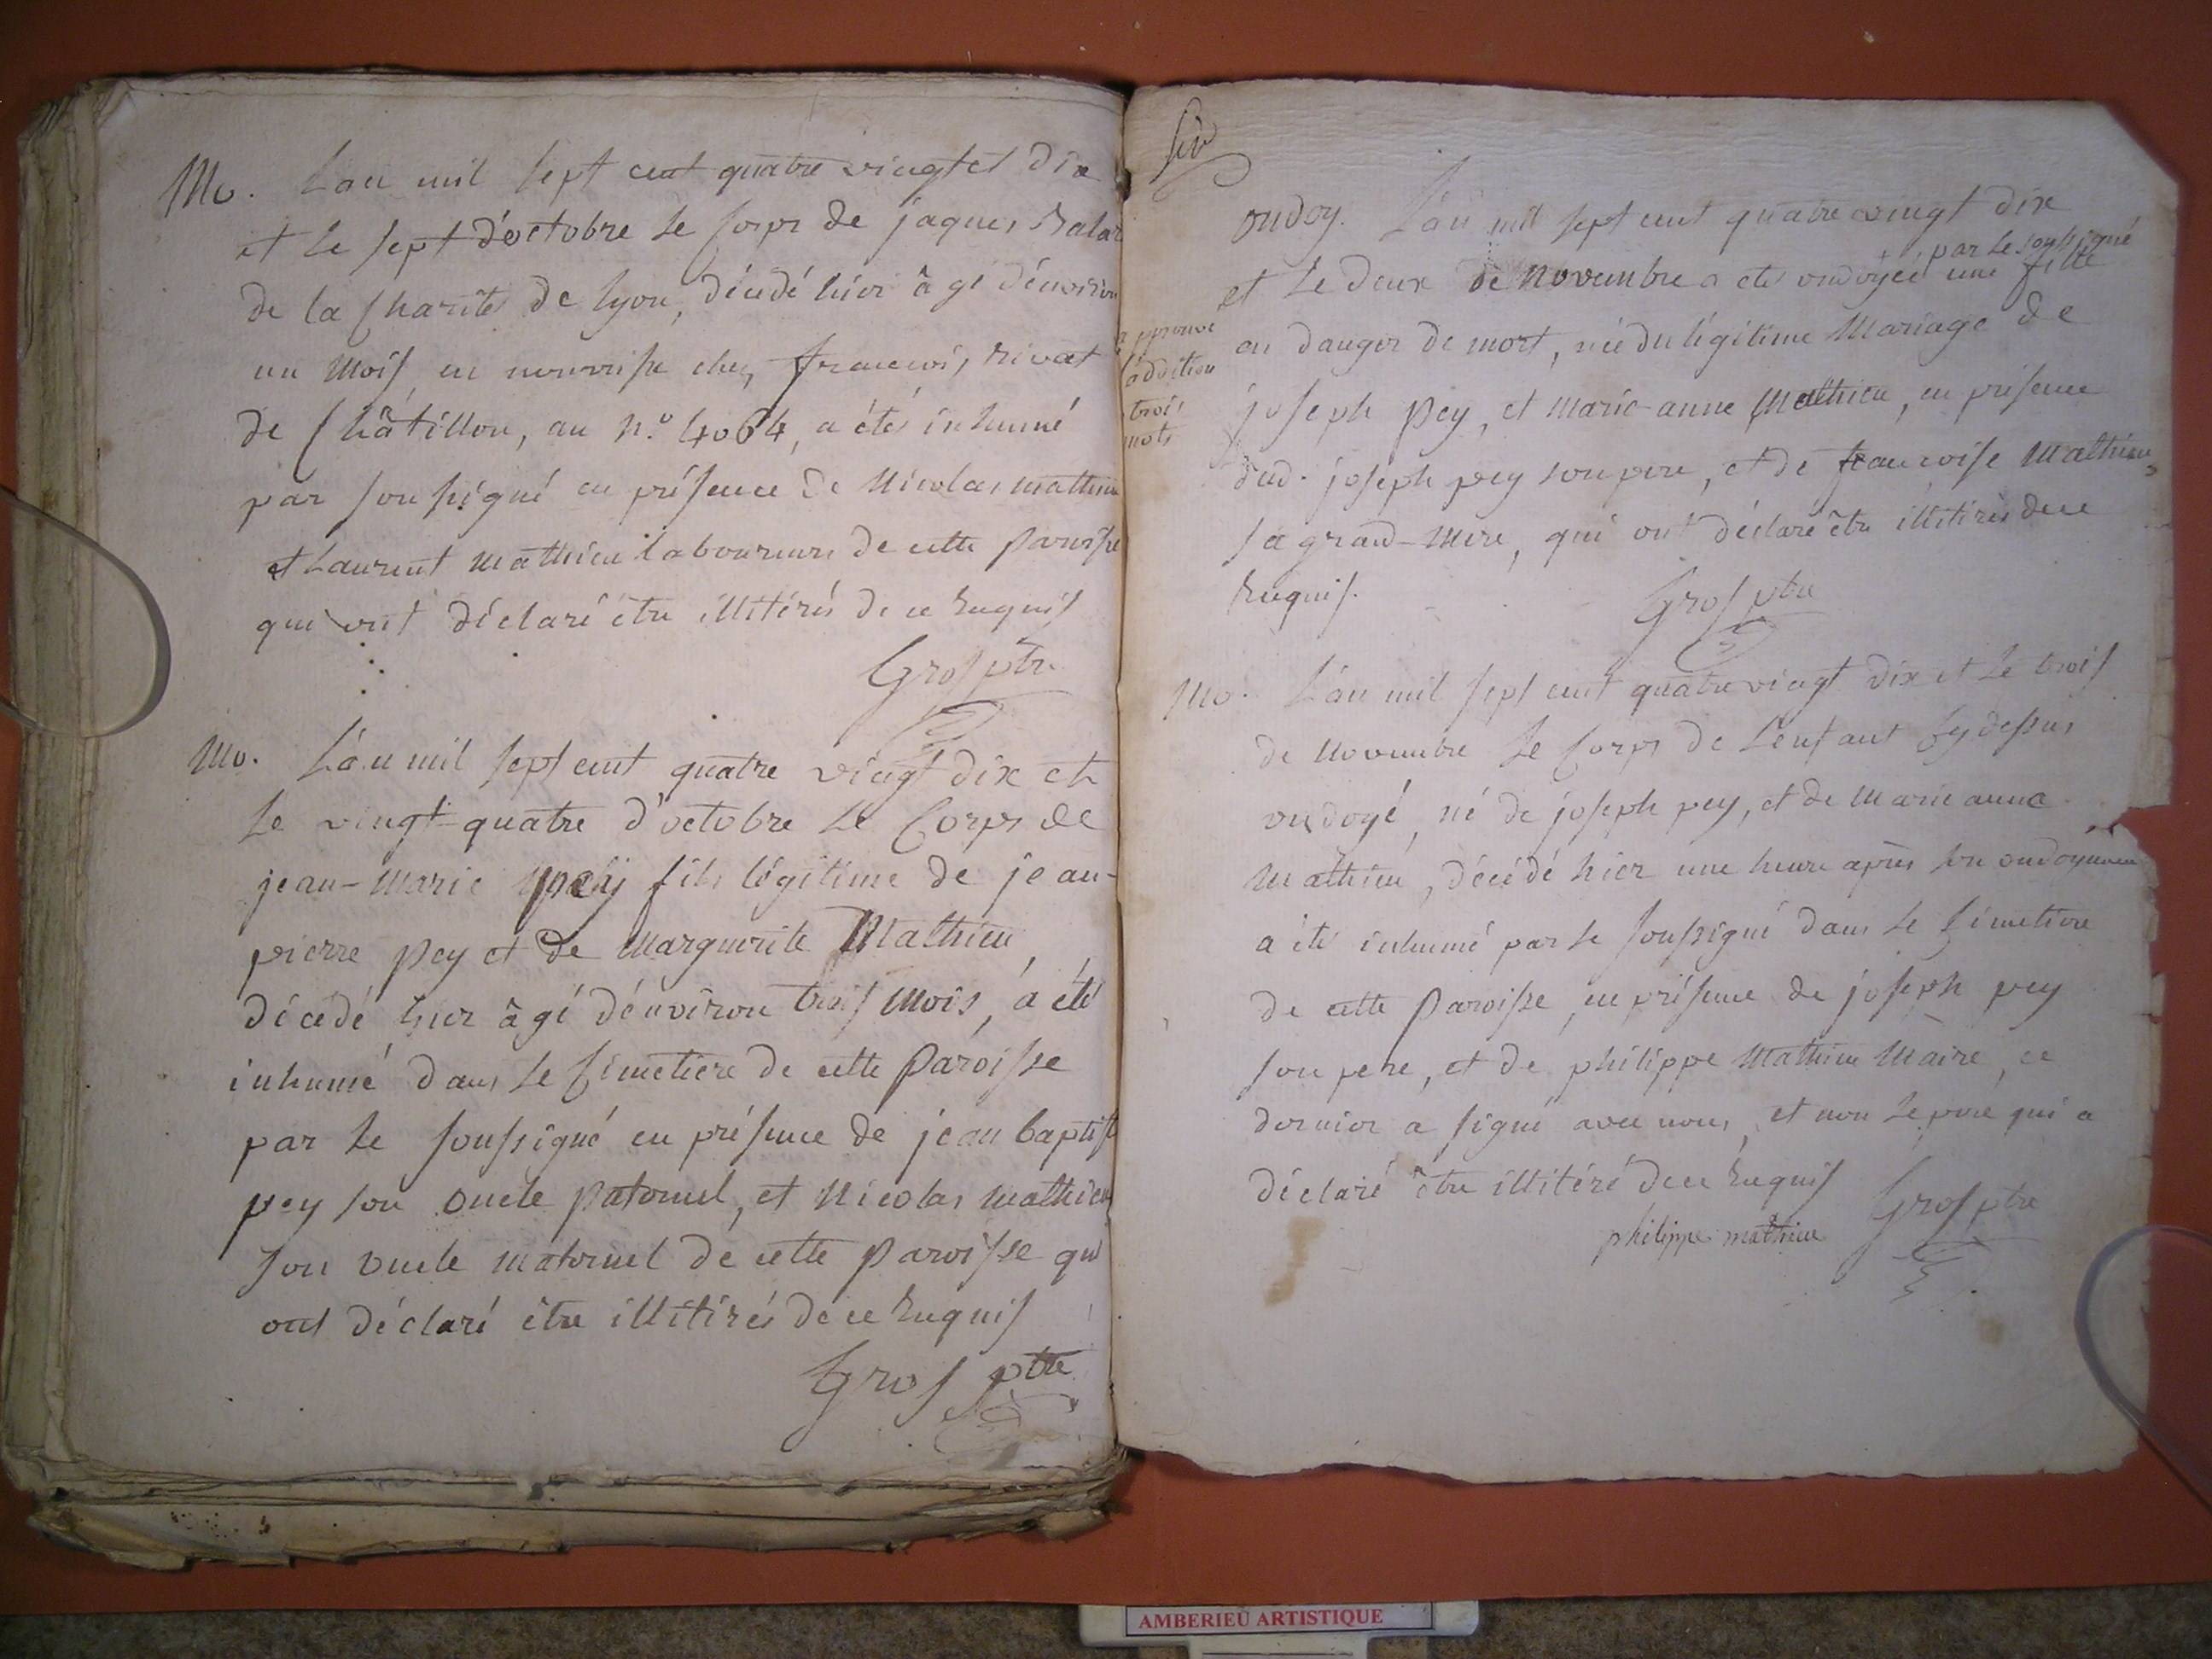 Mo. L'an mil sept cent quatre vingtet dix
et le sept d'octobre le Corps de jaques Balar
de la Charité de lyon, décédé hier âgé d'environ
un mois en nourrisse chez francois rivat
de Châtillon, au n.º 4064, a été inhumé
par soussigné en présence de Nicolas mathieu
et Laurent mathieu laboureurs de cette paroisse
qui ont déclaré être illitérés de ce Enquis
Gros ptre
Mo. L'an mil sept cent quatre vingt dix et
le vingt-quatre d'octobre le Corps de
jean-marie pey fils légitime de jean-
pierre pey et de marguerite Mathieu,
décédé hier âgé d'environ trois mois, a été
inhumé dans le Cimetiere de cette paroisse
par le soussigné en présence de jean baptist
pey son oncle paternel, et Nicolas mathieu
son oncle maternel de cette paroisse qui
ont déclaré être illitérés de ce Enquis
Gros ptre
ondoy. L'an mil sept cent quatre vingt dix
par le soussigné
et le deux de novembre a eté ondoyée une fille
en danger de mort, née du légitime mariage de
approuve
l'addition
trois
mots
joseph pey, et marie-anne Mathieu, en présence
dud. joseph pey son pere, et de francoise mathieu
sa grand-mere, qui ont déclaré être illitérés de ce
Enquis.
Gros ptre
Mo. L'an mil sept cent quatre vingt dix et le trois
de novembre le Corps de L'enfant Cy dessus
ondoyé, né de joseph pey, et de marie anne
mathieu, décédé hier une heure après son ondoyement
a été inhumé par le soussigné dans le Cimetiere
de cette paroisse, en présence de joseph pey
son pere, et de philippe mathieu maire, ce
dernier a signé avec nous, et non le pere qui a
déclaré être illitéré de ce Enquis
philippe mathieu Gros ptre
AMBERIEU ARTISTIQUE